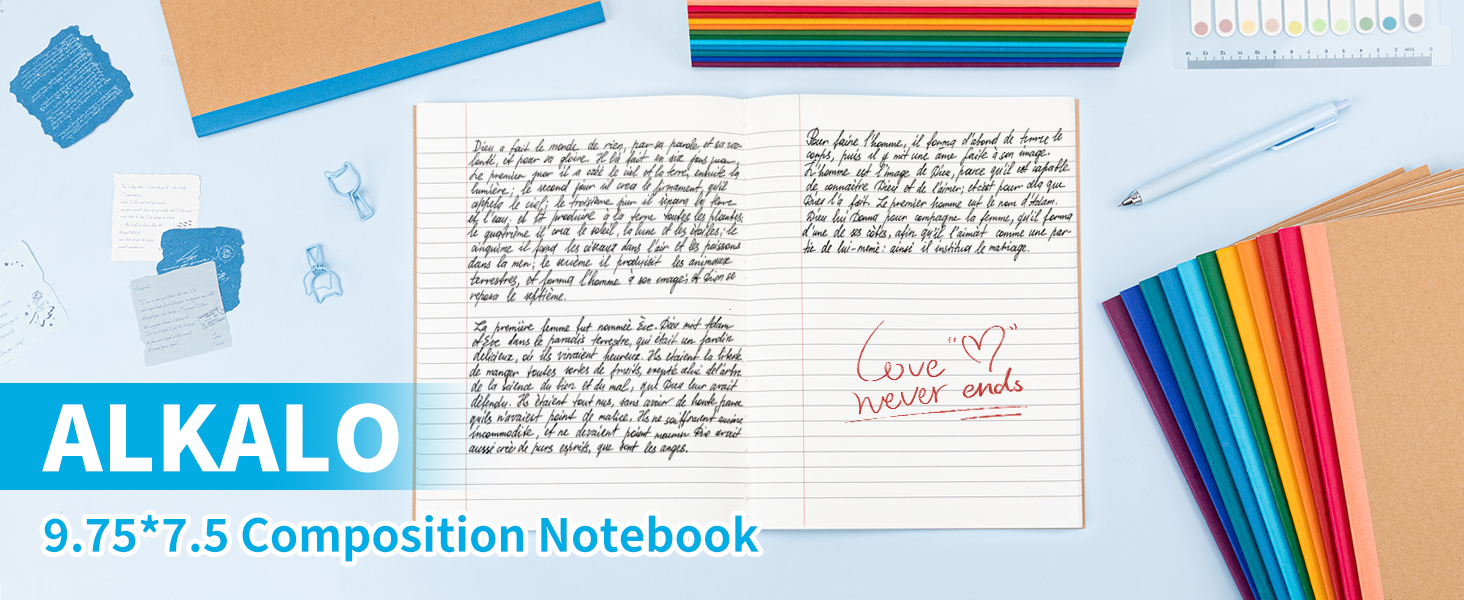 Dieu a fait le monde de rien, par sa parole et sa vo-
lonté, et pour sa gloire. Il l'a fait en six jours.
Le premier jour il a créé le ciel et la terre, ensuite la
lumière; le second jour il créa le firmament, qu'il
appela le ciel; le troisième jour il sépara la terre
et l'eau, et fit produire à la terre toutes les plantes;
le quatrième il créa le soleil, la lune et les étoiles; le
cinquième il fond les oiseaux dans l'air et les poissons
dans la mer; le sixième il produisit les animaux
terrestres, et forma l'homme à son image; et Dieu se
reposa le septième.
La première femme fut nommée Ève. Dieu mit Adam
et Ève dans le paradis terrestre, qui était un jardin
délicieux, où ils vivaient heureux. Ils étaient la liberté
de manger toutes sortes de fruits, excepté celui de l'arbre
de la science du bien et du mal, que Dieu leur avait
défendu. Ils étaient tout nus, sans avoir de honte, parce
qu'ils n'avaient point de malice. Ils ne souffraient aucune
incommodité, et ne devaient point mourir Dieu avait
aussi créé de purs esprits, que sont les anges.
Pour faire l'homme, il forma d'abord de terre le
corps, puis il y mit une âme faite à son image.
L'homme est l'image de Dieu, parce qu'il est capable
de connaître Dieu et de l'aimer; et c'est pour cela que
Dieu l'a fait. Le premier homme eut le nom d'Adam.
Dieu lui donna pour compagne la femme, qu'il forma
d'une de ses côtes, afin qu'il l'aimât comme une par-
tie de lui-même: ainsi il institua le mariage.
Love "♡"
never ends
ALKALO
9.75*7.5 Composition Notebook